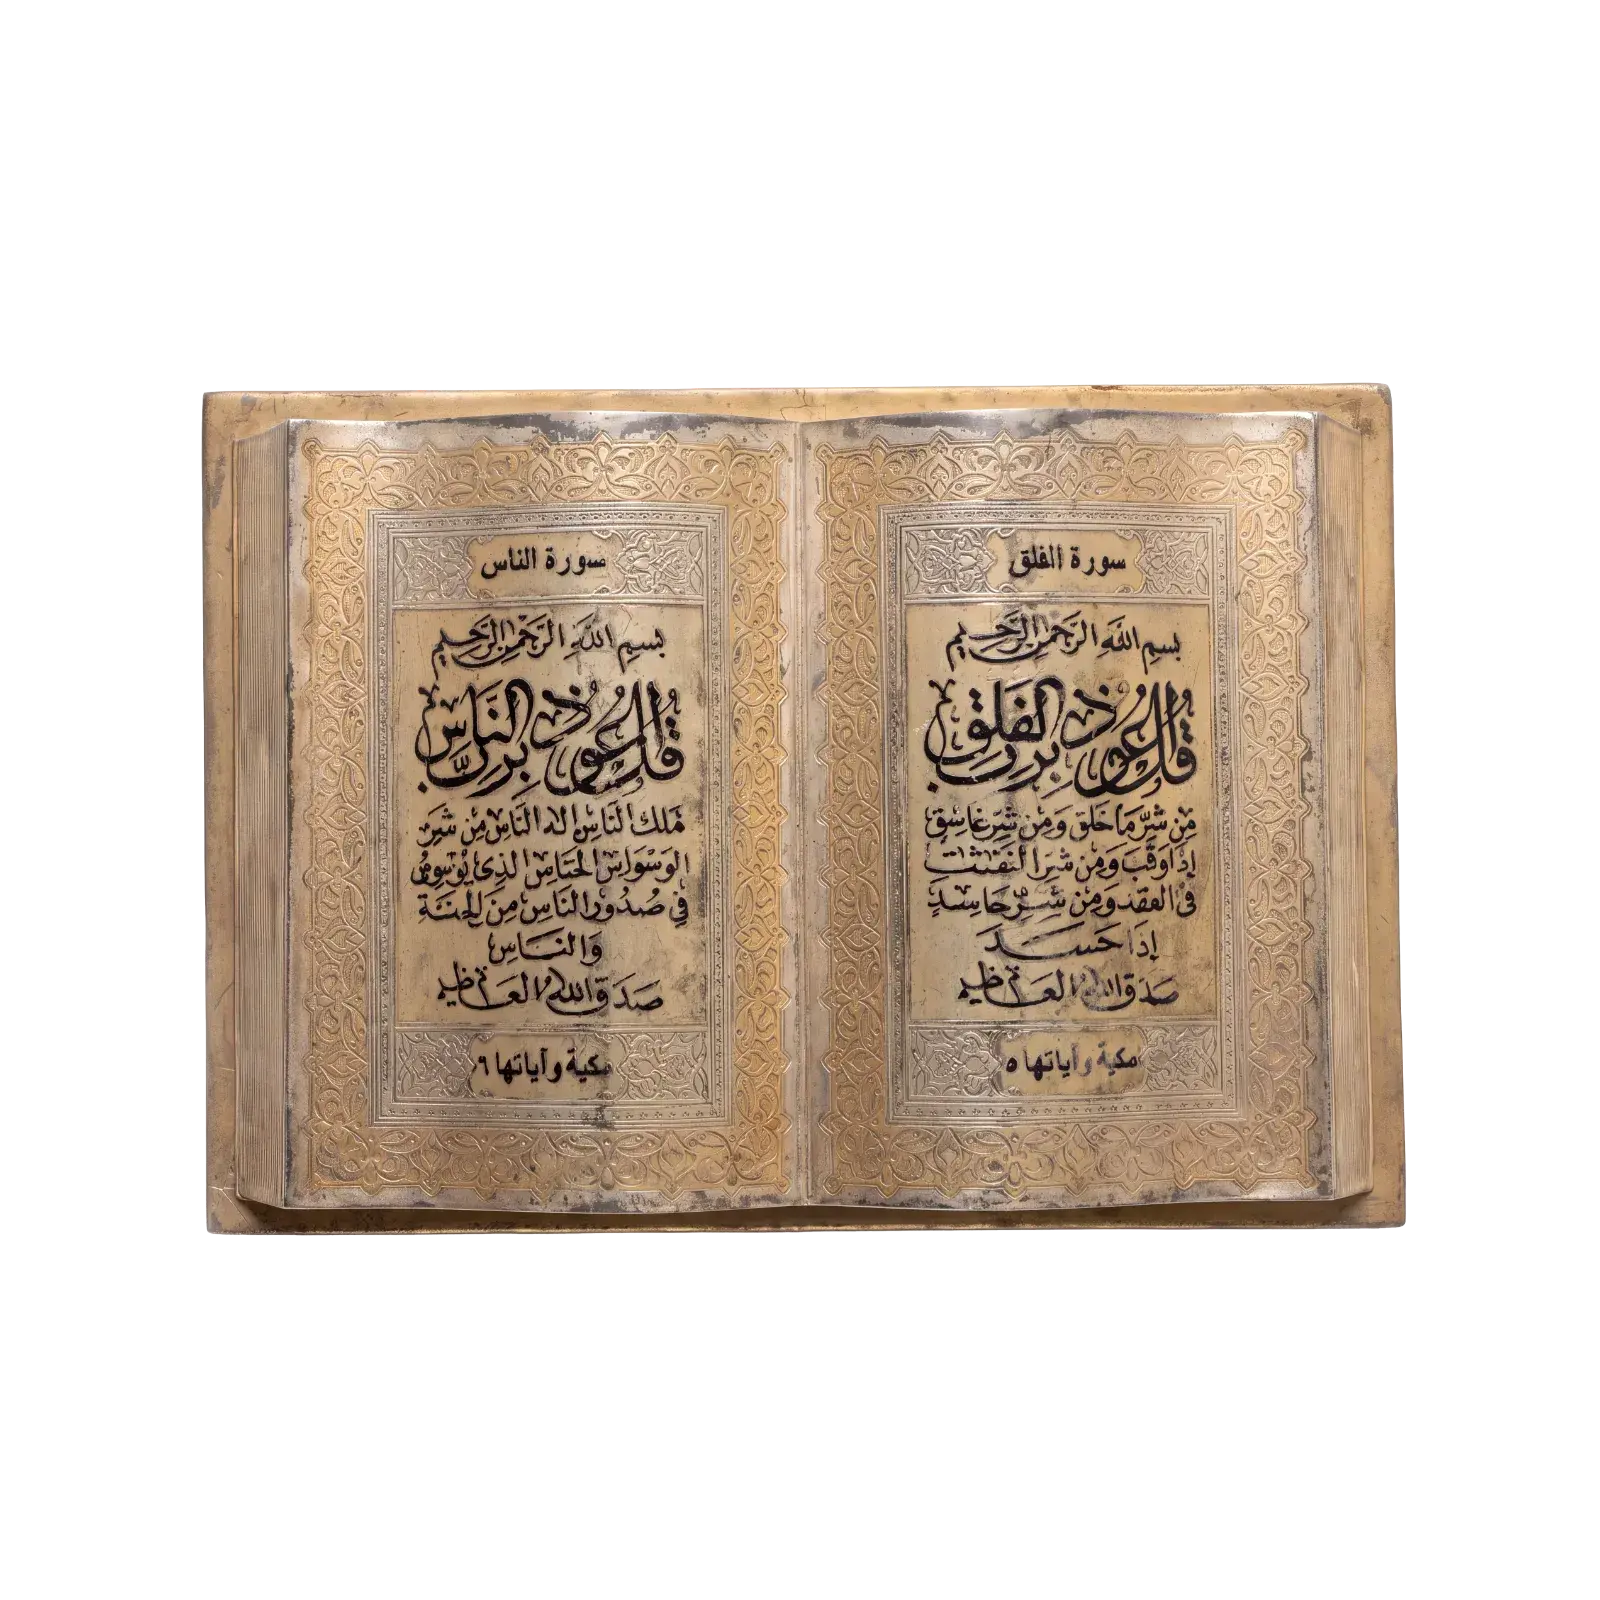 سورة الفلق
بسم الله الرحمن الرحيم
قل أعوذ برب الفلق
من شر ما خلق ومن شر غاسق
إذا وقب ومن شر النفثت
في العقد ومن شر حاسد
إذا حسد
صدق الله العظيم
مكية وآياتها ٥
سورة الناس
بسم الله الرحمن الرحيم
قل أعوذ برب الناس
ملك الناس اله الناس من شر
الوسواس الخناس الذي يوسوس
في صدور الناس من الجنة
والناس
صدق الله العظيم
مكية وآياتها ٦